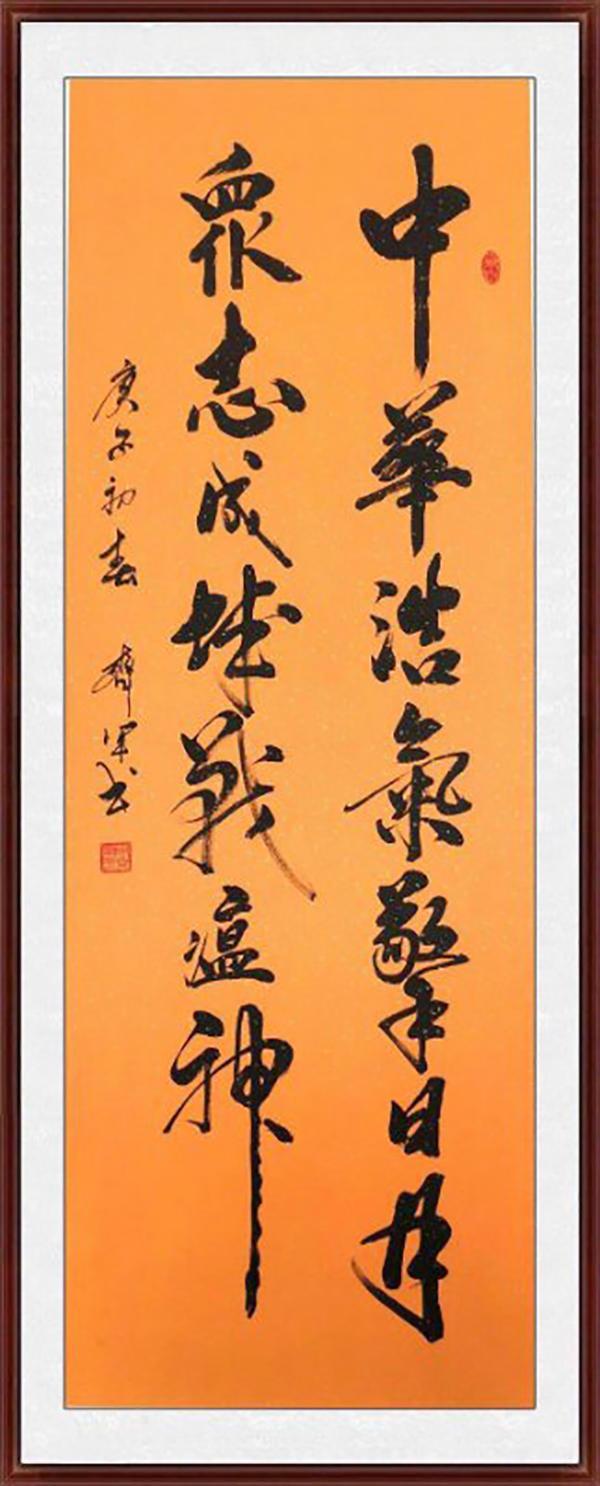 中華浩氣擎日月
眾志成城戰瘟神
庚子初春 軍书